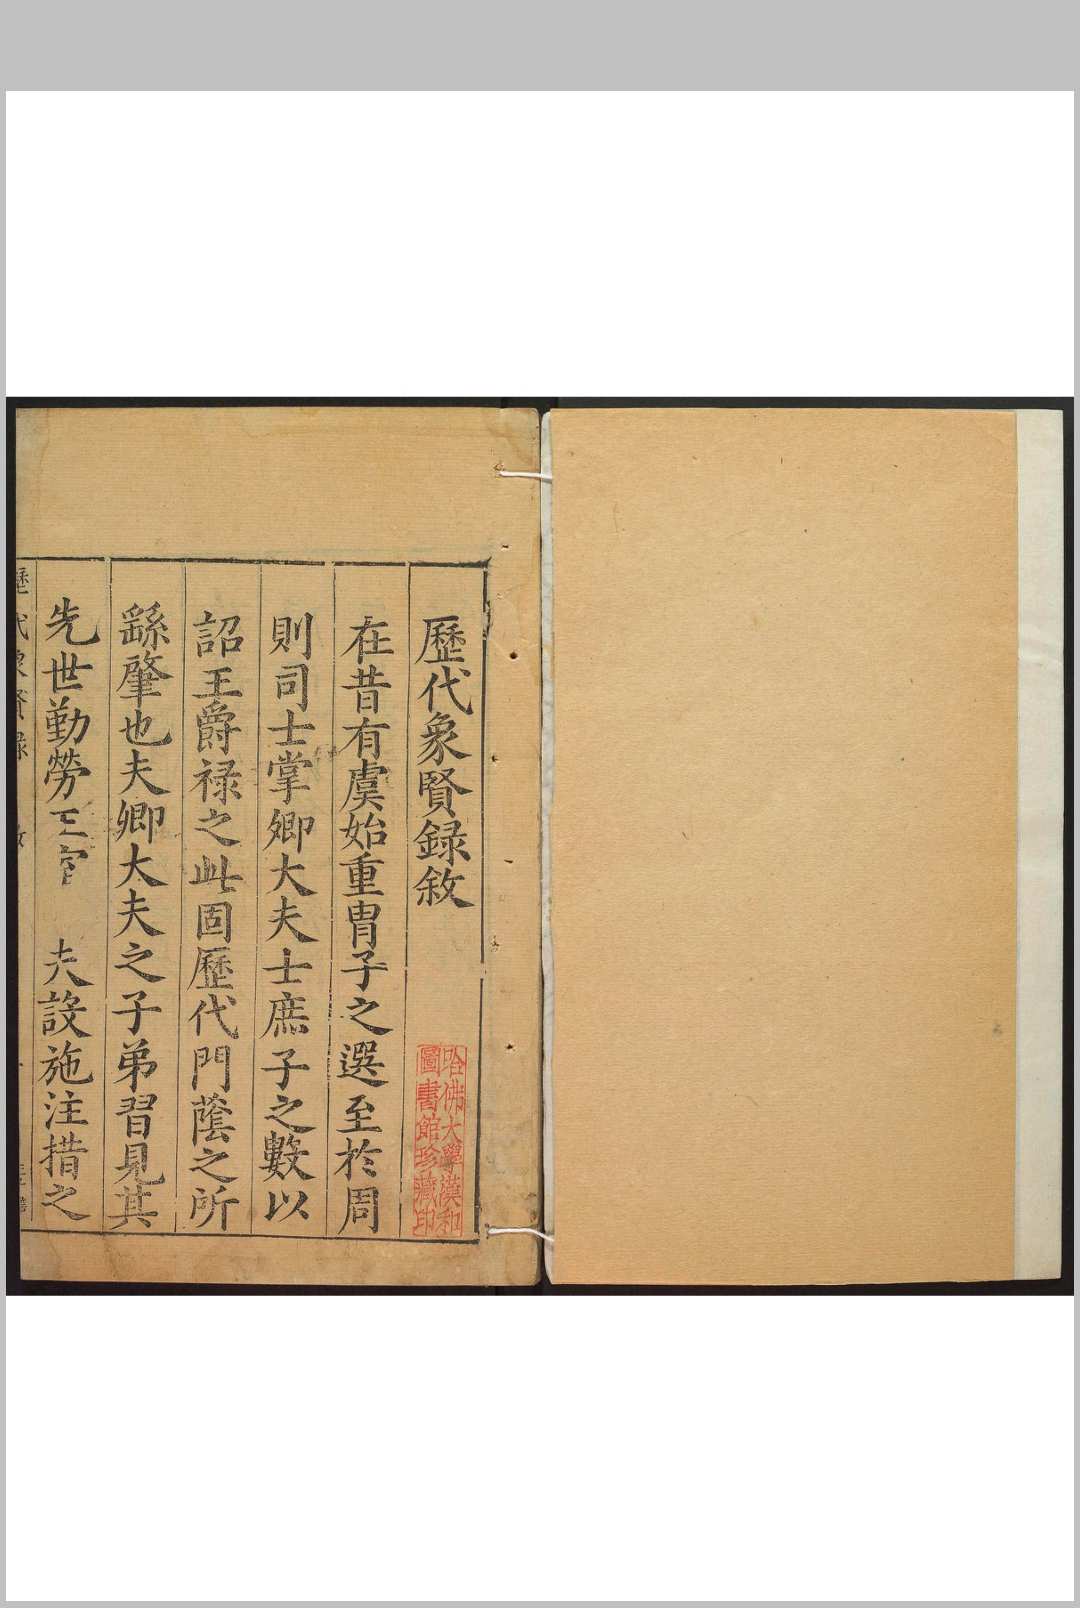 歷代象賢録敘
在昔有虞始重胄子之選至於周
則司士掌卿大夫士庶子之數以
詔王爵禄之此固歷代門蔭之所
繇肇也夫卿大夫之子弟習見其
先世勤勞王官 夫設施注措之
歷代象賢録
哈佛大學漢和
圖書館珍藏印